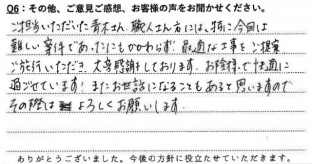 Q6：その他、ご意見ご感想、お客様の声をお聞かせください。
ご担当いただいた青木さん、職人さん方には、特に今回は
難しい案件であったにもかかわらず、最適な工事をご提案
ご施行いただき、大変感謝しております。お陰様で快適に
過ごせています！またお世話になることもあると思いますので
その際は よろしくお願いします。
ありがとうございました。今後の方針に役立たせていただきます。